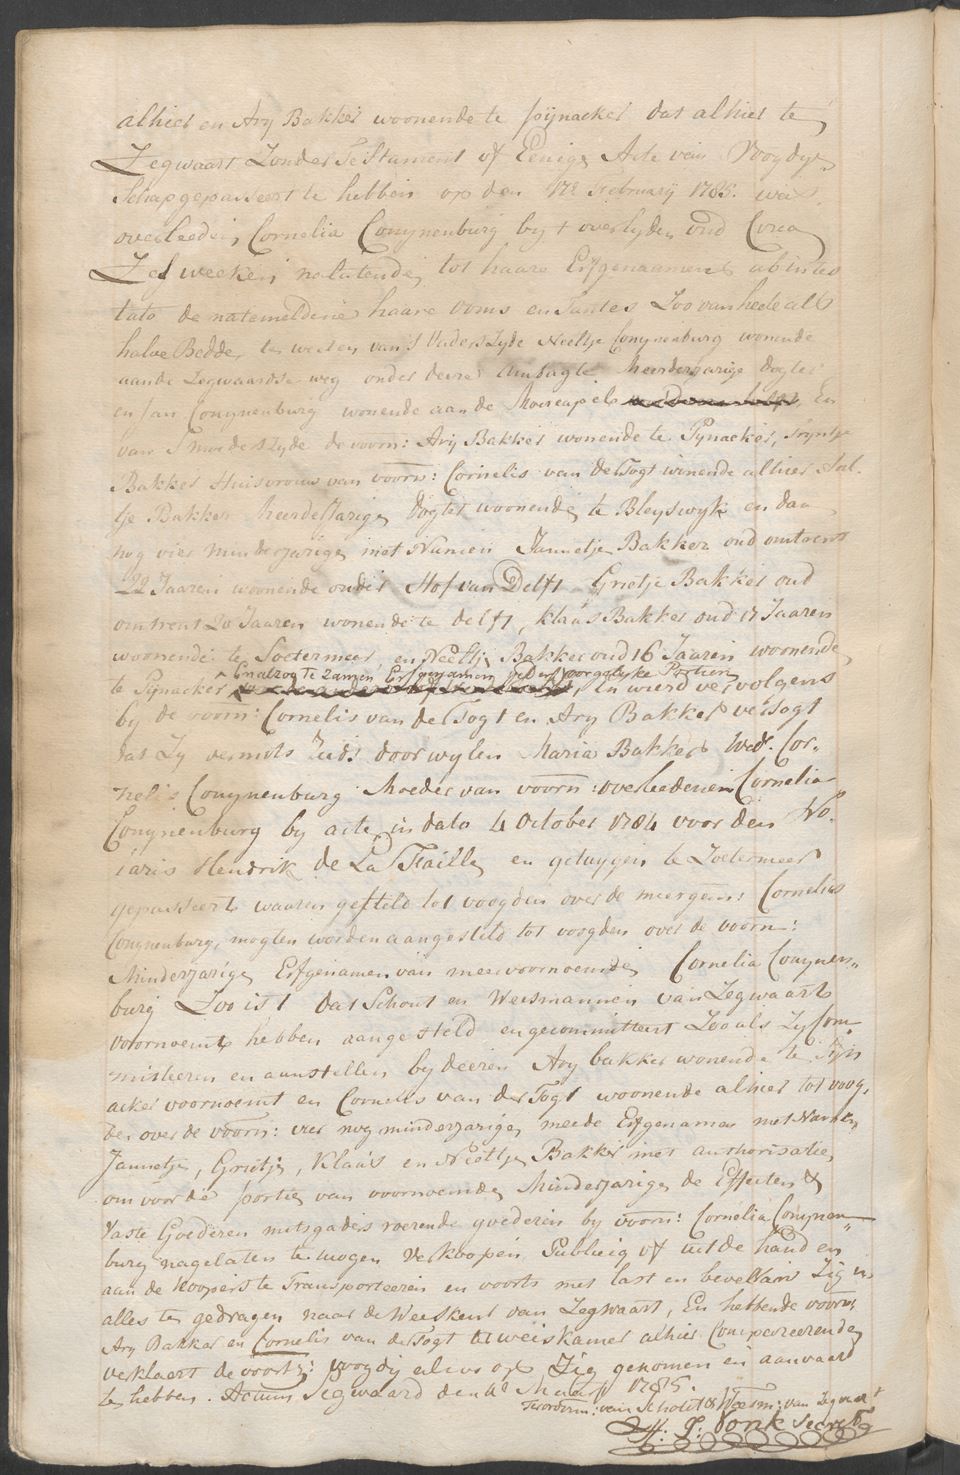 alhier en Ary Bakker woonende te Pijnacker dat alhier te
Zegwaart Zonder Testament of Eenige Acte van Voogdy-
Schap gepasseert te hebben op den 17e February 1785. was
overleeden, Cornelia Conynenburg by 't overlyden oud Circa
Zes weeken nalatende tot haare Erfgenaamen ab intes
tato de natemeldene haare ooms en Tantes Zoo van heele als
halve Bedde, te weeten van 's Vaders Zyde Neeltje Conynenburg wonende
aan de Zegwaardse weg onder deese Ambagte Meerderjarige dogter
en Jan Conynenburg wonende aan de Moercapel En
van Smoeders Zyde de voorn: Ary Bakker wonende te Pynacker, Tryntje
Bakker Huisvrouw van voorn: Cornelis van der Togt wonende alhier
tje Bakker Meerderjarige dogter woonende te Bleyswyk en dan
nog vier minderjarige met Namen Jannetje Bakker oud omtrent
22 Jaaren woonende onder Hof van Delft Grietje Bakker oud
omtrent 20 Jaaren wonende te delft, Klaas Bakker oud 17 Jaaren
woonende te Soetermeer, en Neeltje Bakker oud 16 Jaaren woonende
En alzoo te zamen Erfgenamen ieder voor gelyke Portien
te Pynacker En wierd vervolgens
by de voorn: Cornelis van der Togt en Ary Bakker versogt
dat Zy vermits door wylen Maria Bakker Wed: Cor-
nelis Conynenburg Moeder van voorn: overleedenen Cornelia
Conynenburg by acte in dato 4 October 1784 voor den No-
taris Hendrik de La Faille en getuygen te Zoetermeer
gepasseert waaren gesteld tot voogden over de meergem: Cornelia
Conynenburg, mogten worden aangesteld tot voogden over de voorn:
Minderjarige Erfgenamen van meervoornoemde Cornelia Conynen-
burg Zoo ist dat Schout en Weesmannen van Zegwaart
voornoemt hebben aangesteld en gecommitteert Zoo als Zy Com-
mitteeren en aanstellen by deezen Ary bakker wonende te Pyn
acker voornoemt en Cornelis van der Togt woonende alhier tot voog-
den over de voorn: vier nog minderjarige meede Erfgenamen met Namen
Jannetje, Grietje, Klaas en Neeltje Bakker met authorisatie
om voor de portie van voornoemde Minderjarige de Effecten &
Vaste Goederen mitsgaders roerende goederen by voorn: Cornelia Conynen-
burg nagelaten te mogen Verkoopen Publicq of uit de hand en
aan de Koopers te Transporteeren en voorts met last en bevel van Zig in
alles te gedragen naar de Weeskeur van Zegwaart, En hebbende voorn:
Ary Bakker en Cornelis van der Togt ter weeskamer alhier Compareerende
verklaart de voorsz: voogdy alsoo op Zig genomen en aanvaard
te hebben. Actum Segwaard den Maart 1785.
Ter ordon: van Schout & Weesm: van Zegwaart
H: J: Vonk Secrets